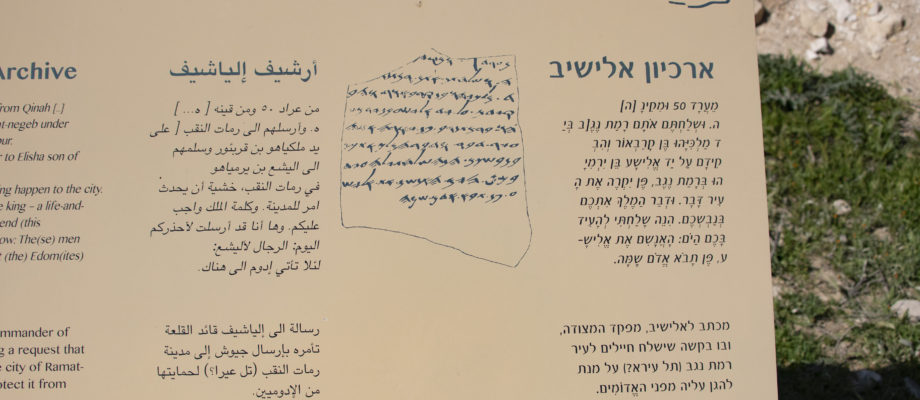 Archive
from Qinah [..]
t-negeb under
our.
r to Elisha son of
ing happen to the city.
e king – a life-and-
end (this
ow: The(se) men
t (the) Edom(ites)
mmander of
g a request that
e city of Ramat-
otect it from
أرشيف إلياشيف
من عراد ٥٠ ومن قينه [ ه... ]
ه. وارسلهم الى رمات النقب [ على
يد ملكياهو بن قربئور وسلمهم
الى اليشع بن يرمياهو
في رمات النقب، خشية أن يحدث
امر للمدينة. وكلمة الملك واجب
عليكم. وها أنا قد أرسلت لأحذركم
اليوم: الرجال لأليشع:
لئلا تأتي إدوم الى هناك.
رسالة الى إلياشيف قائد القلعة
تأمره بإرسال جيوش إلى مدينة
رمات النقب (تل عيرا؟) لحمايتها
من الإدوميين.
ארכיון אלישיב
מֵעֲרָד 50 וּמִקִּינָ [ה]
ה. וּשְׁלַחְתֶּם אֹתָם רָמַת נֶגֶ[ב בְּיַ
ד מַלְכִּיָּהוּ בֶּן קֵרַבְאוּר וְהִבְ
קִידָם עַל יַד אֱלִישָׁע בֶּן יִרְמִיָ
הוּ בְּרָמַת נֶגֶב, פֶּן יִקְרֶה אֶת הָ
עִיר דָּבָר. וּדְבַר הַמֶּלֶךְ אִתְּכֶם
בְּנַבְשְׁכֶם. הִנֵּה שָׁלַחְתִּי לְהָעִיד
בָּכֶם הַיֹּם: הָאֲנָשִׁם אֶת אֱלִישָׁ-
ע, פֶּן תָּבֹא אֱדֹם שָׁמָּה.
מכתב לאלישיב, מפקד המצודה,
ובו בקשה שישלח חיילים לעיר
רמת נגב (תל עירא?) על מנת
להגן עליה מפני הָאֱדוֹמִים.